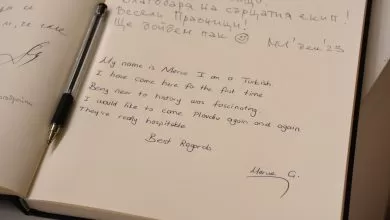 Благодаря на сърцатия екип!
Весели Празници!
Ще дойдем пак ☺
дек'23
My name is Merve I am a Turkish
I have come here fo the first time
Being new to history was fascinating
I would like to come Plovdiv again and again
They're really hospitable
Best Regards
Merve G.